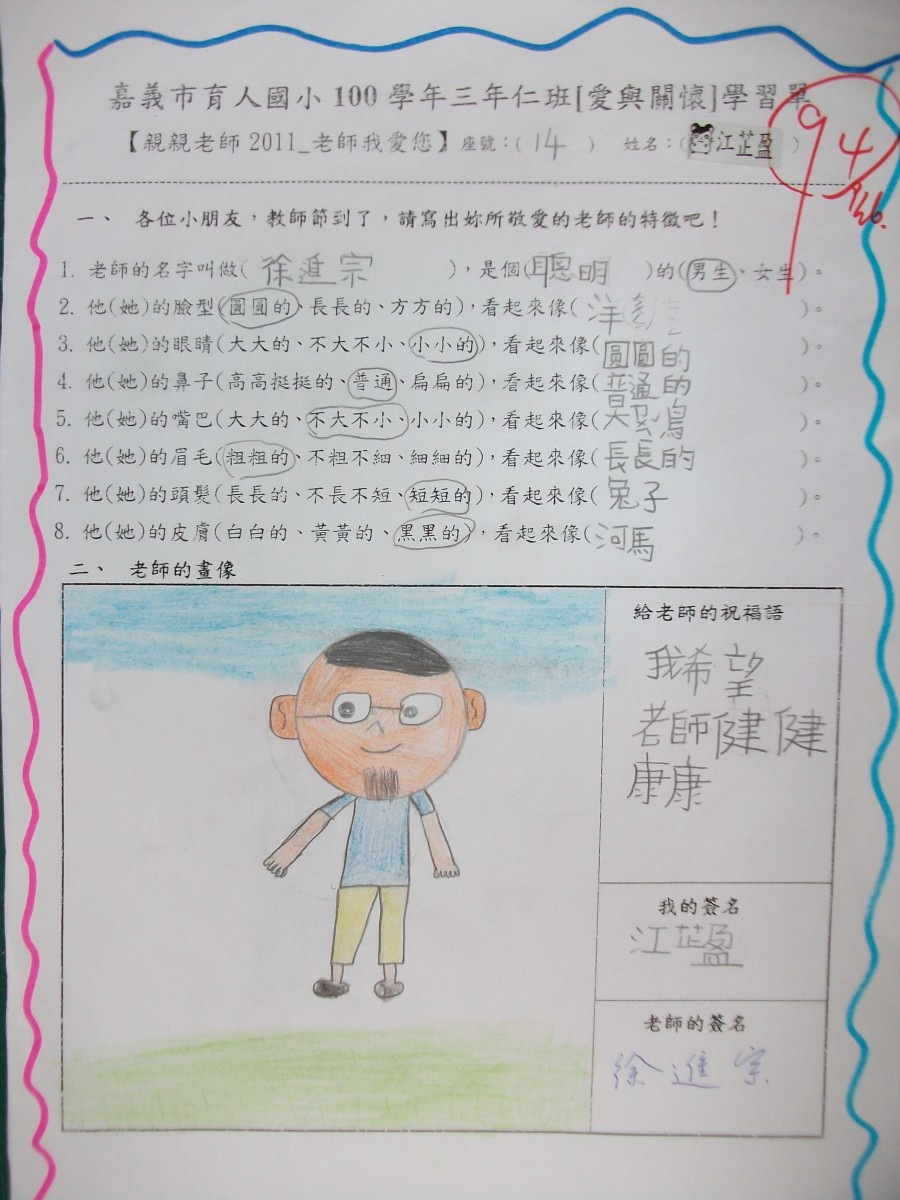 嘉義市育人國小100學年三年仁班[愛與關懷]學習單
【親親老師2011_老師我愛您】座號:(14) 姓名:(江芷盈)
94
一、 各位小朋友,教師節到了,請寫出妳所敬愛的老師的特徵吧!
1. 老師的名字叫做(徐進宗),是個(聰明)的(男生、女生)。
2. 他(她)的臉型(圓圓的、長長的、方方的),看起來像(洋)。
3. 他(她)的眼睛(大大的、不大不小、小小的),看起來像(圓圓的)。
4. 他(她)的鼻子(高高挺挺的、普通、扁扁的),看起來像(普通的)。
5. 他(她)的嘴巴(大大的、不大不小、小小的),看起來像(鳥)。
6. 他(她)的眉毛(粗粗的、不粗不細、細細的),看起來像(長長的)。
7. 他(她)的頭髮(長長的、不長不短、短短的),看起來像(兔子)。
8. 他(她)的皮膚(白白的、黃黃的、黑黑的),看起來像(河馬)。
二、 老師的畫像
給老師的祝福語
我希望
老師健健
康康
我的簽名
江芷盈
老師的簽名
徐進宗